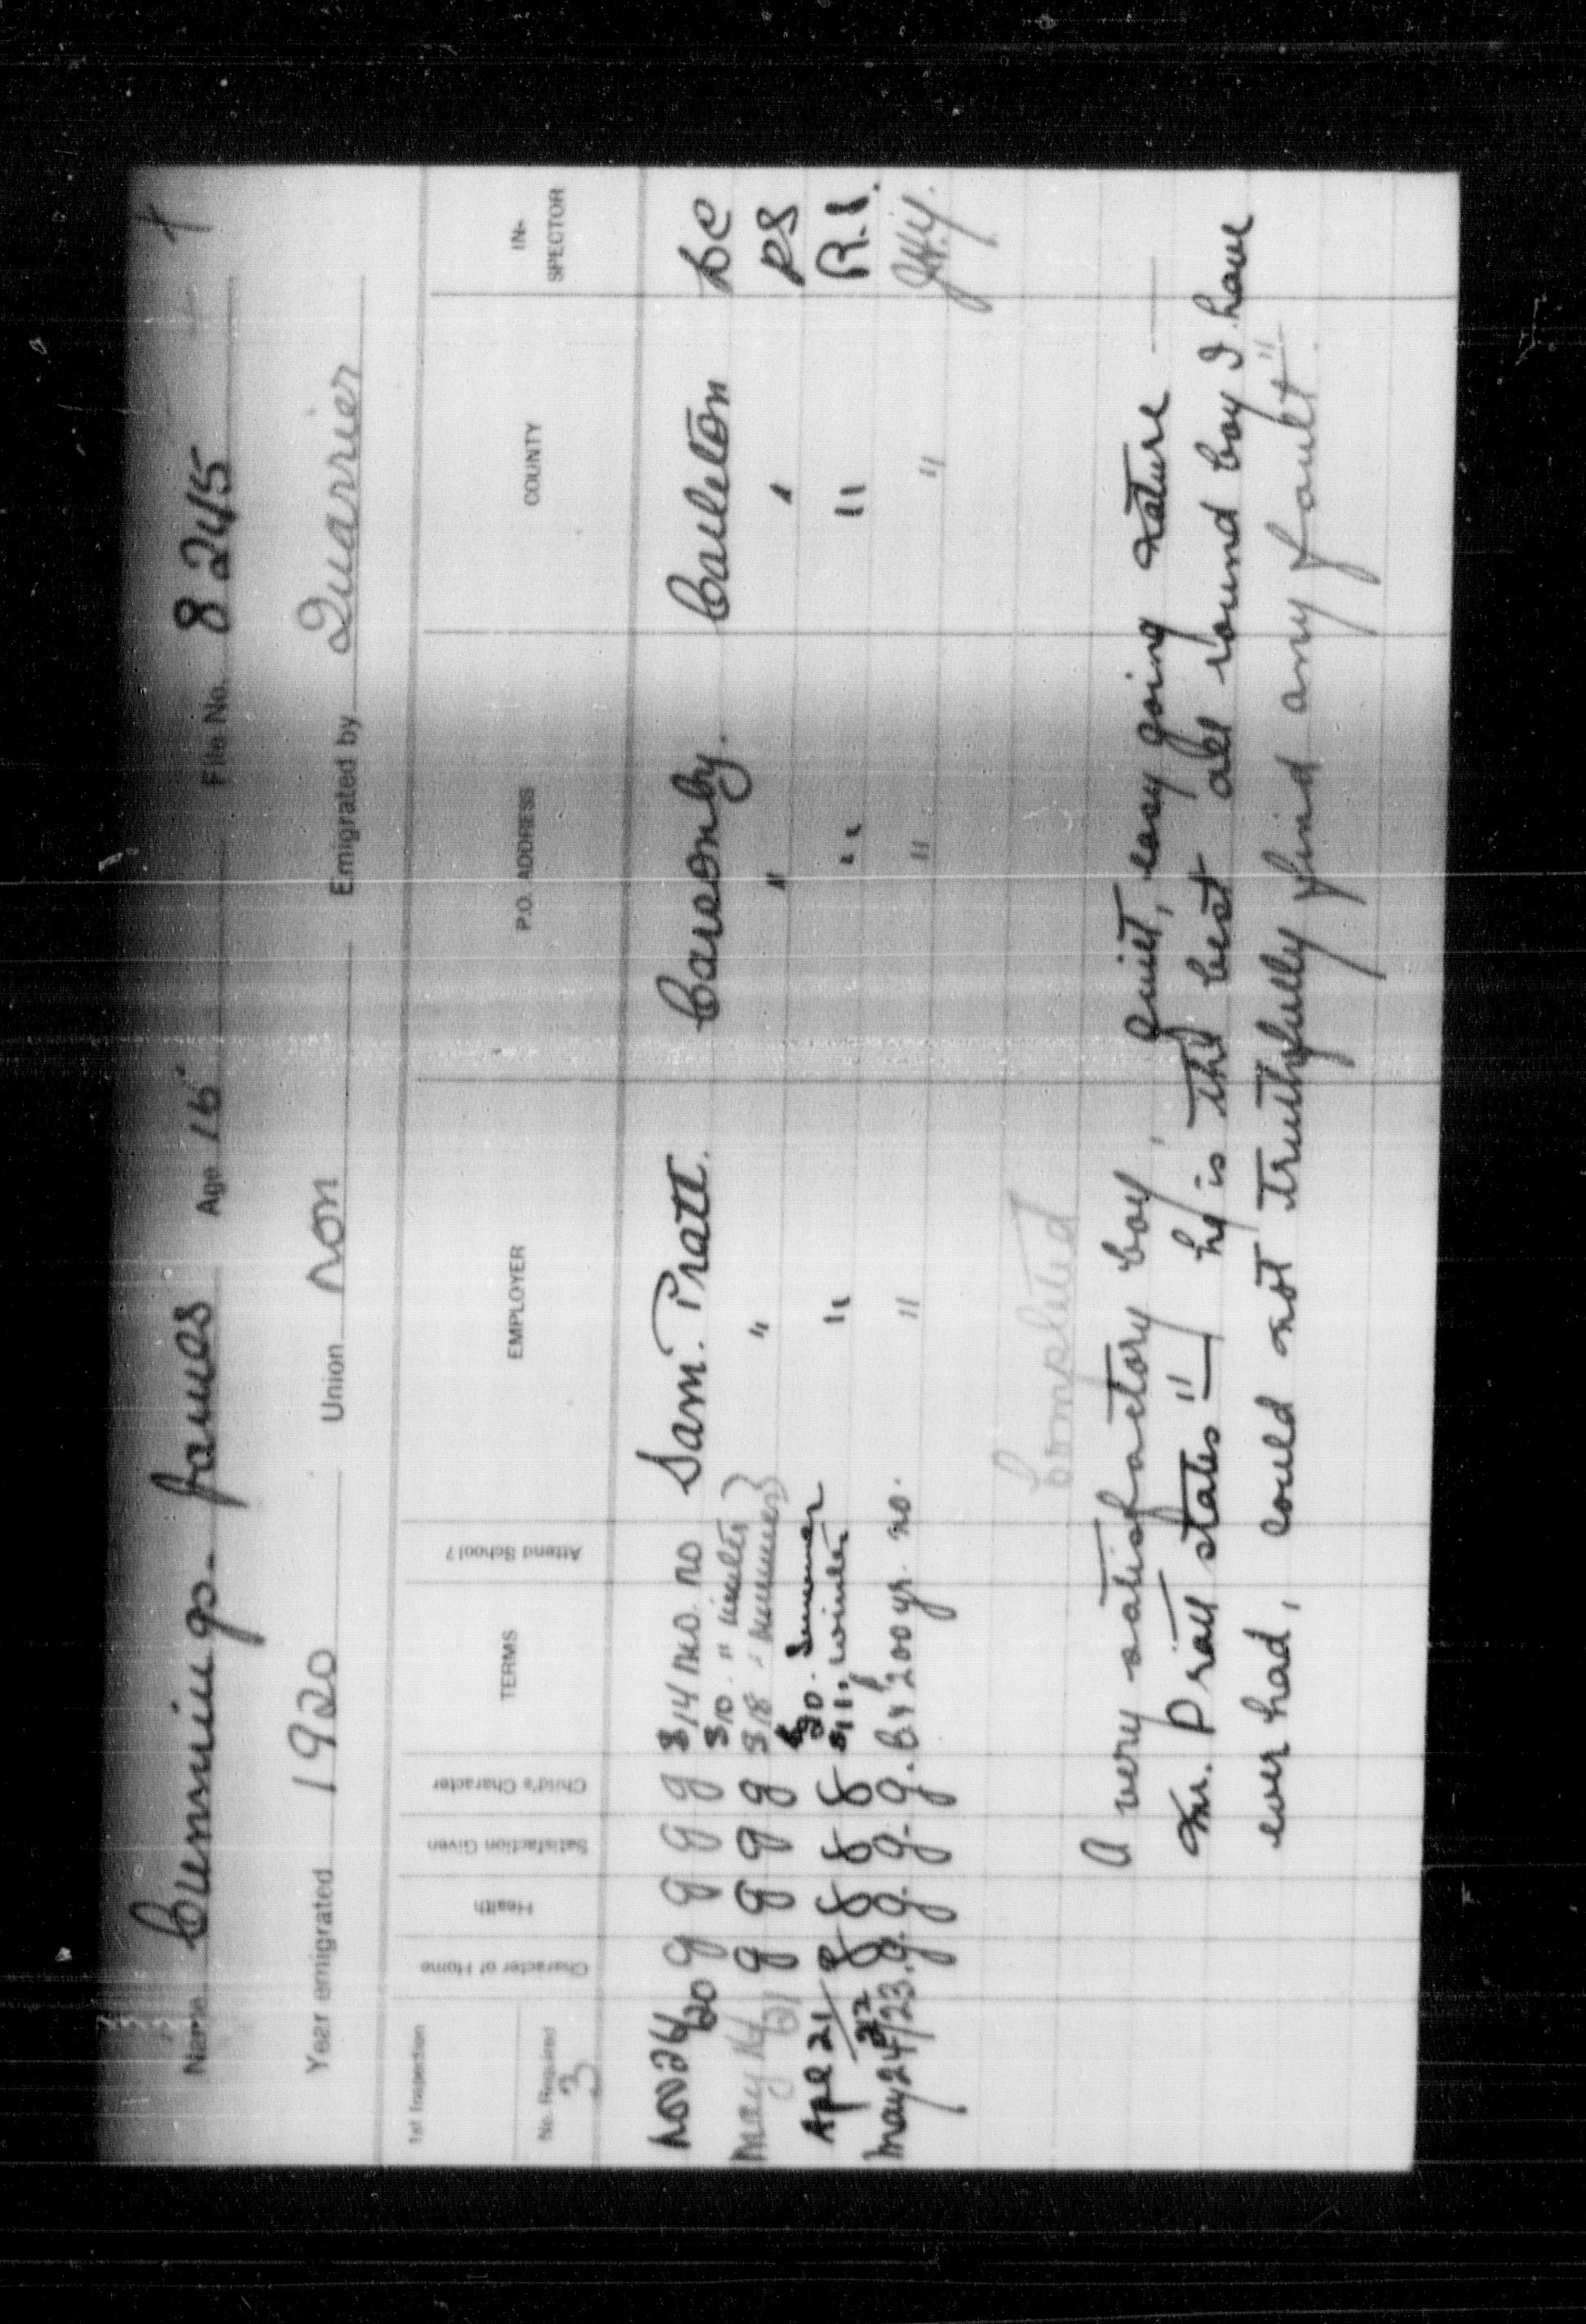 Name Cummings. James Age 16 File No. 8245
Year emigrated 1920 Union non Emigrated by Quarrier
1st Inspection
No. Required
3
Character of Home
Health
Satisfaction Given
Child's Character
TERMS
Attend School?
EMPLOYER
P.O. ADDRESS
COUNTY
IN-
SPECTOR
Nov 24/20 g g g g $14 mo. no Sam. Pratt. Carsonby. Carleton
$10. " winter
May 14/21 g g g g $18 " summer " " " RS
$20. Summer
Apl 21/22 g g g g $11, winter " " " R.I.
May 24/23. g. g. g. g. 200 yr. no. " " "
Completed
A very satisfactory boy, quiet, easy going nature —
Mr. Pratt states "— he is the best all round boy I have
ever had, could not truthfully find any fault"